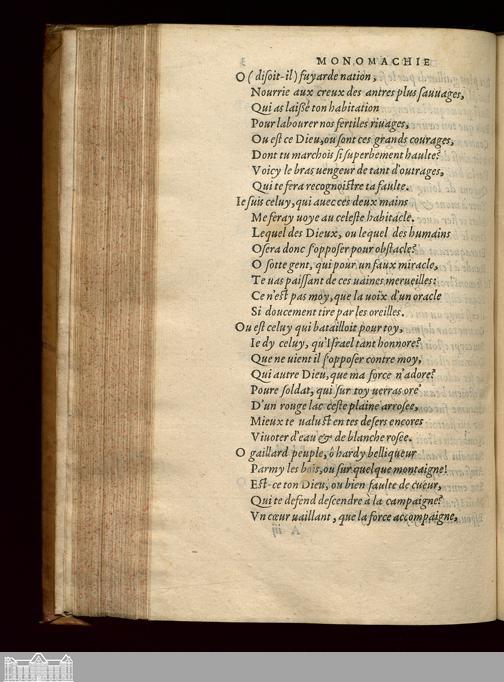 MONOMACHIE
O (disoit-il) fuyarde nation,
Nourrie aux creux des antres plus sauuages,
Qui as laißé ton habitation
Pour labourer nos fertiles riuages,
Ou est ce Dieu, ou sont ces grands courages,
Dont tu marchois si superbement haulte?
Voicy le bras uengeur de tant d'outrages,
Qui te fera recognoistre ta faulte.
Ie suis celuy, qui auec ces deux mains
Me feray uoye au celeste habitacle.
Lequel des Dieux, ou lequel des humains
Osera donc s'opposer pour obstacle?
O sotte gent, qui pour un faux miracle,
Te uas paissant de ces uaines merueilles:
Ce n'est pas moy, que la uoix d'un oracle
Si doucement tire par les oreilles.
Ou est celuy qui batailloit pour toy,
Ie dy celuy, qu'Israel tant honnore?
Que ne uient il s'opposer contre moy,
Qui autre Dieu, que ma force n'adore?
Poure soldat, qui sur toy uerras ore'
D'un rouge lac ceste plaine arrosee,
Mieux te ualust en tes desers encores
Viuoter d'eau & de blanche rosee.
O gaillard peuple, ô hardy belliqueur
Parmy les bois, ou sur quelque montaigne!
Est-ce ton Dieu, ou bien faulte de cueur,
Qui te defend descendre à la campaigne?
Vn cœur uaillant, que la force accompaigne,